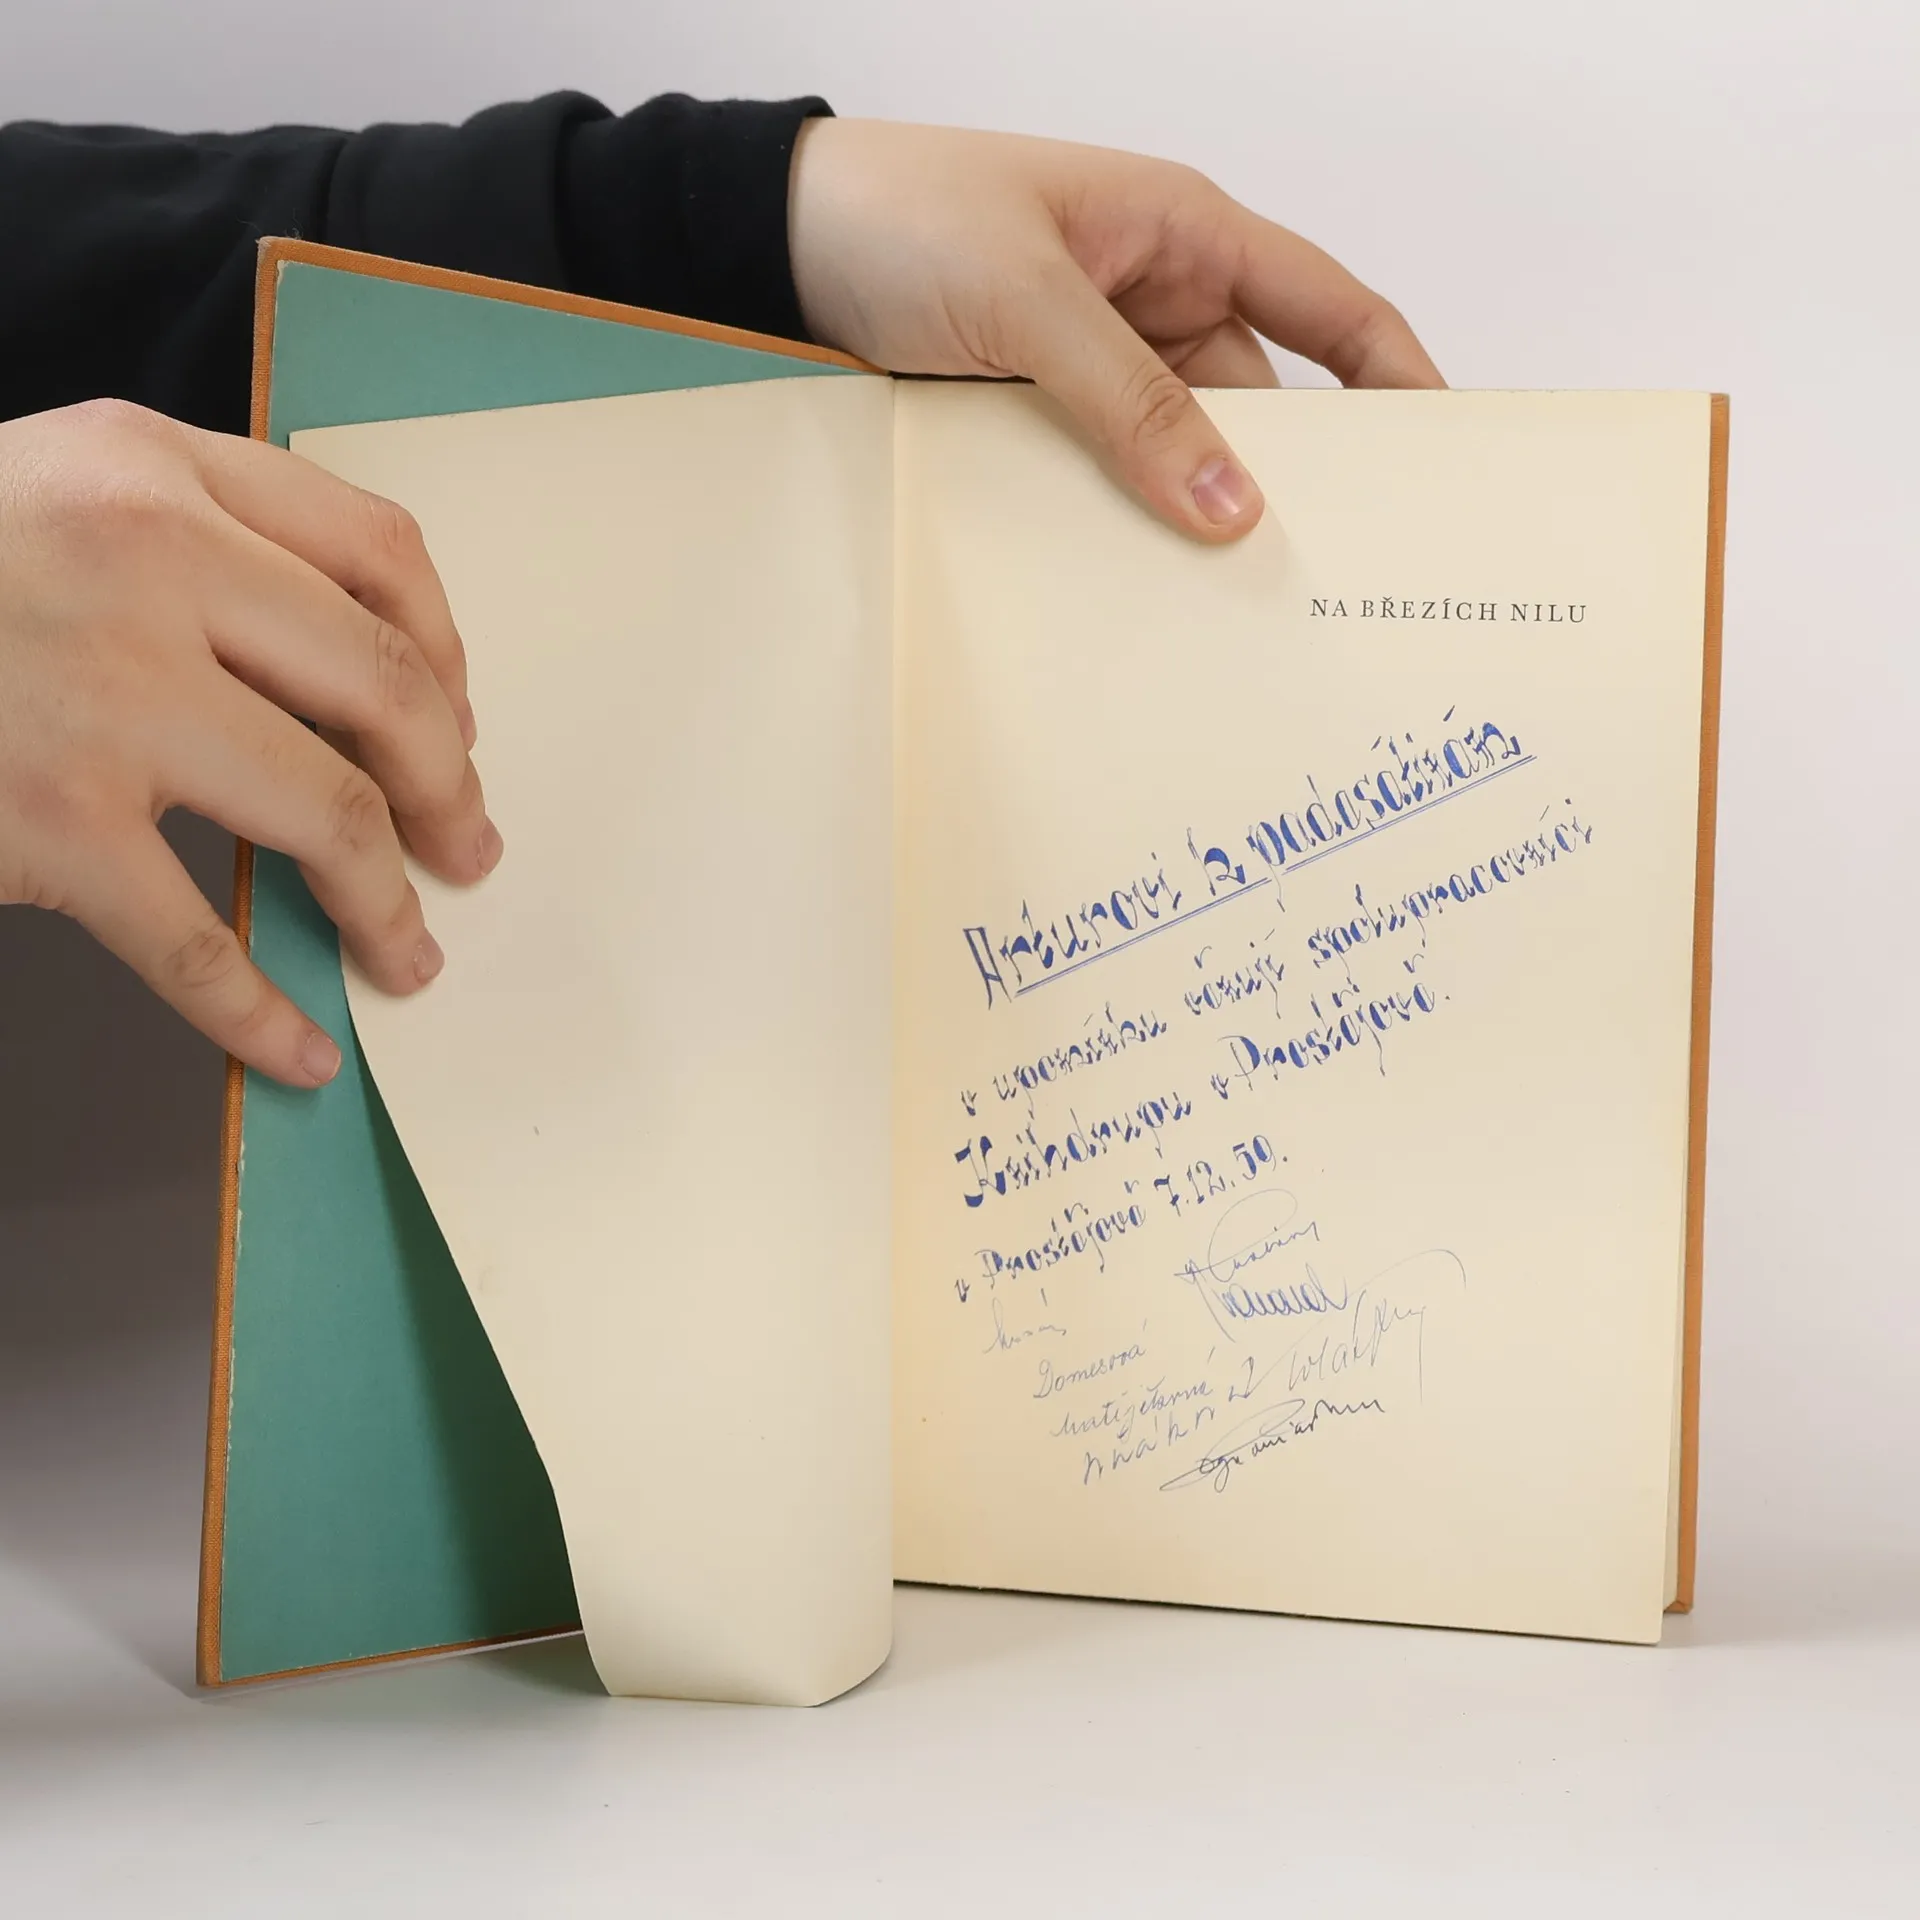 NA BŘEZÍCH NILU
Arturovi k padesátinám
v upomínku věnují spolupracovníci
Knihkupu v Prostějově.
v Prostějově 7.12.59.
Domesová
Matějíčková